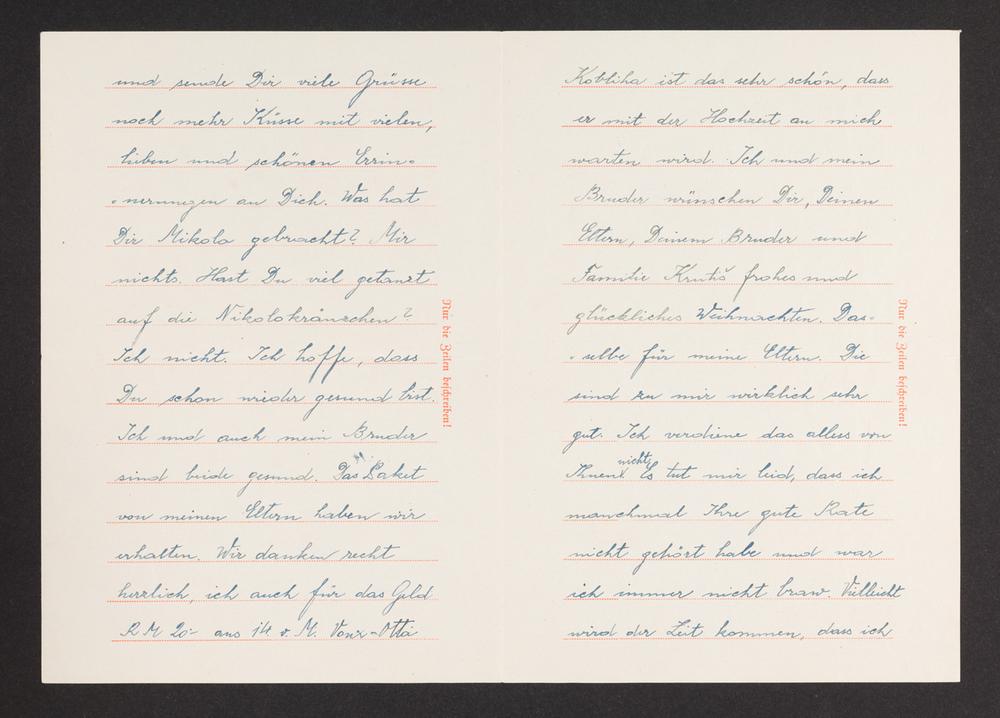 und sende Dir viele Grüsse
noch mehr Küsse mit vielen,
lieben und schönen Errin-
-nerungen an Dich. Was hat
Dir Mikolo gebracht? Mir
nichts. Hast Du viel getanzt
auf die Nikolokränzchen?
Ich nicht. Ich hoffe, dass
Du schon wieder gesund bist.
Ich und auch mein Bruder
sind beide gesund. Das Paket
von meinen Eltern haben wir
erhalten. Wir danken recht
herzlich, ich auch für das Geld
RM 20.- aus 14. v. M. Von
Nur die Zeilen beschreiben!
Kobliha ist das sehr schön, dass
er mit der Hochzeit an mich
warten wird. Ich und mein
Bruder wünschen Dir, Deinen
Eltern, Deinem Bruder und
Familie Krutiš frohes und
glückliches Weihnachten. Das-
-selbe für meine Eltern. Die
sind zu mir wirklich sehr
gut. Ich verdiene das alles von
Ihnen nicht. Es tut mir leid, dass ich
manchmal Ihre gute Rate
nicht gehört habe und war
ich immer nicht braw. Vielleicht
wird der Zeit kommen, dass ich
Nur die Zeilen beschreiben!